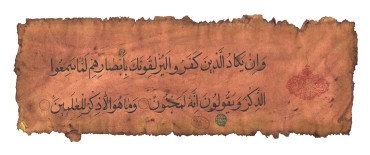 وان يكاد الذين كفروا ليزلقونك بابصارهم لما سمعوا
الذكر ويقولون انه لمجنون وما هو الا ذكر للعلمين